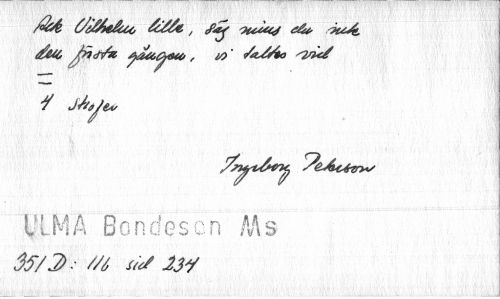 Ack Vilhelm lille, säg mins du inte
den första gången, vi taltes vid
=
4 strofer
Ingeborg Peterson
ULMA Bondeson Ms
351 D: 116 sid 234